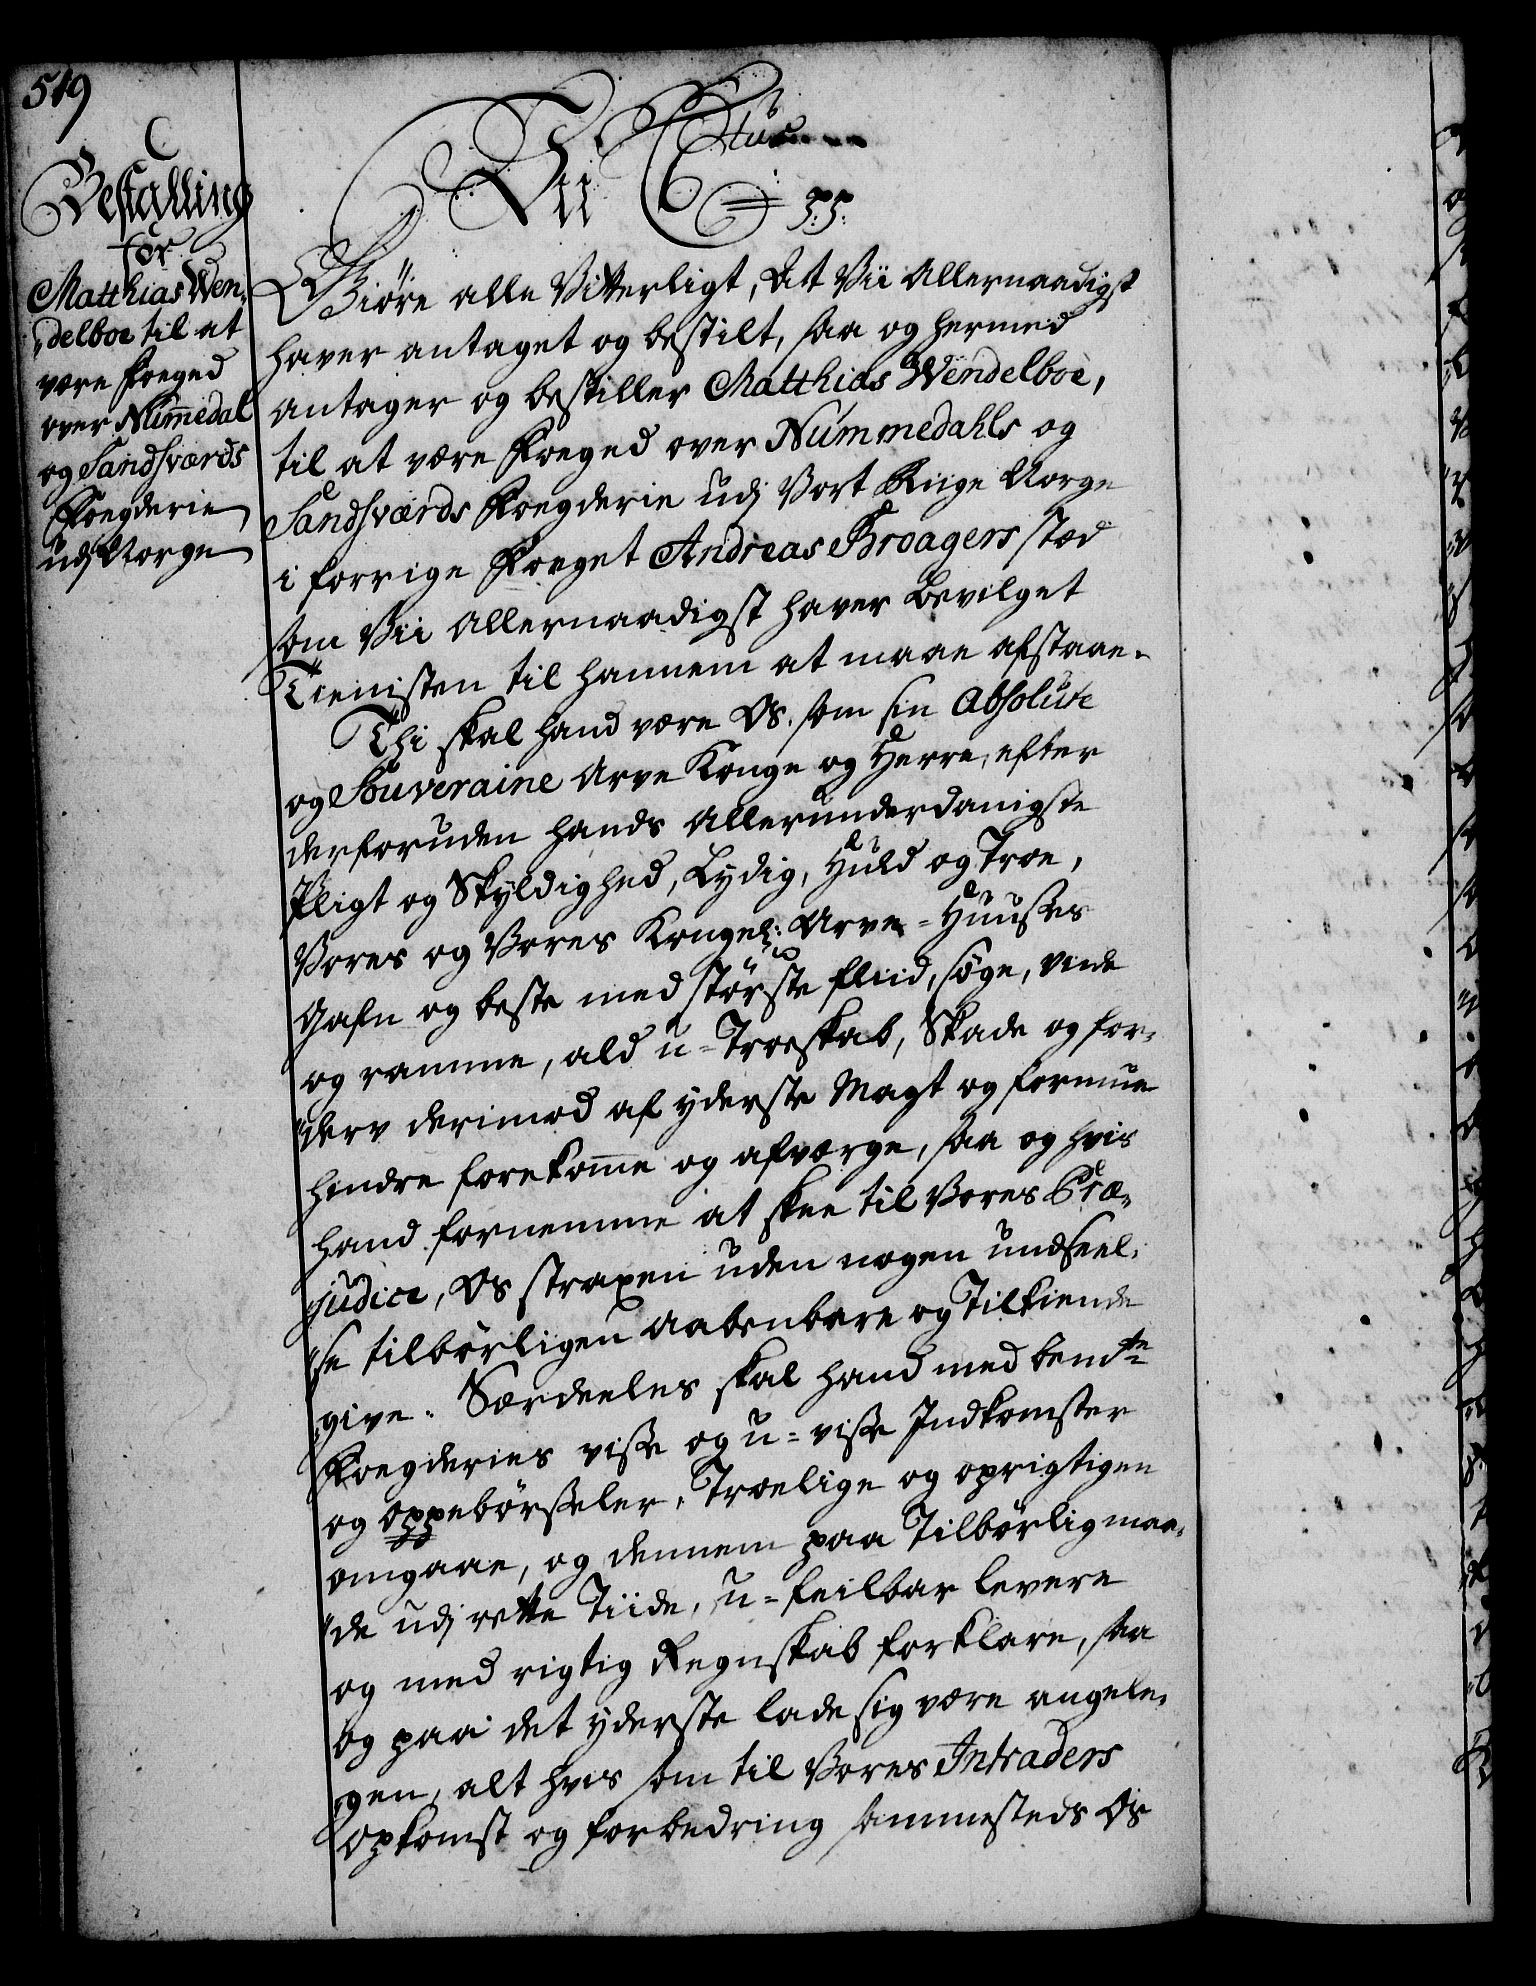 519
Bestalling
for
Matthias Wen-
delboe til at
være Foged
over Nummedal
og Sandsværds
Fogderie
udj Norge
Vii C
tus
p. p.
Giöre alle Vitterligt, At Vii Allernaadigst
haver antaget og bestilt, saa og hermed
antager og bestiller Matthias Wendelboe,
til at være Foeged over Nummedahls og
Sandsværds Foegderie udj Vort Riige Norge
i forrige Foeget Andreas Broagers stæd
som Vii Allernaadigst haver bevilget
Tienisten til hannem at maae afstaae.
Thi skal hand være Os, som sin Absolute
og Souveraine Arve Konge og Herre, efter
derforuden hands Allerunderdanigste
Pligt og Skyldighed, Lydig, Huld og Troe,
Vores og Vores Kongel: Arve-Huusses
Gafn og beste med störste fliid, söge, vide
og ramme, ald u-Troeskab, Skade og for-
derv derimod af yderste Magt og formue
hindre forekomme og afværge, saa og hvis
hand fornemme at skee til Vores Præ-
judice, Os straxen uden nogen undseel-
se tilbörligen Aabenbare og Tilkiende
give. Særdeeles skal hand med bemte
Foegderies visse og u-visse Indkomster
og Oppebörsseler, Troelige og oprigtigen
omgaae, og dennem paa Tilbörlig maa-
de udj rette Tiide, u-feilbar levere
og med rigtig Regnskab forklare, saa
og paa det yderste lade sig være angele-
gen, alt hvis som til Vores Intraders
Opkomst og forbedring sammesteds Os